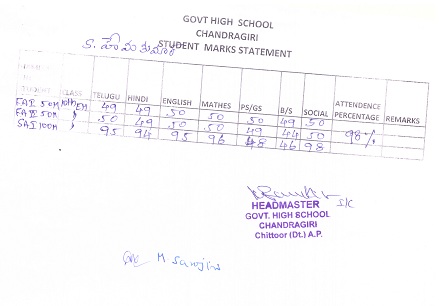 GOVT HIGH SCHOOL
CHANDRAGIRI
STUDENT MARKS STATEMENT
CLASS TELUGU HINDI ENGLISH MATHES PS/GS B/S SOCIAL ATTENDENCE PERCENTAGE REMARKS
FAI 50M 10th EM 49 49 50 50 50 49 50
FAII 50M " 50 49 50 50 49 44 50 98%
SAI 100M " 95 94 95 96 48 46 98
HEADMASTER
GOVT. HIGH SCHOOL
CHANDRAGIRI
Chittoor (Dt.) A.P.